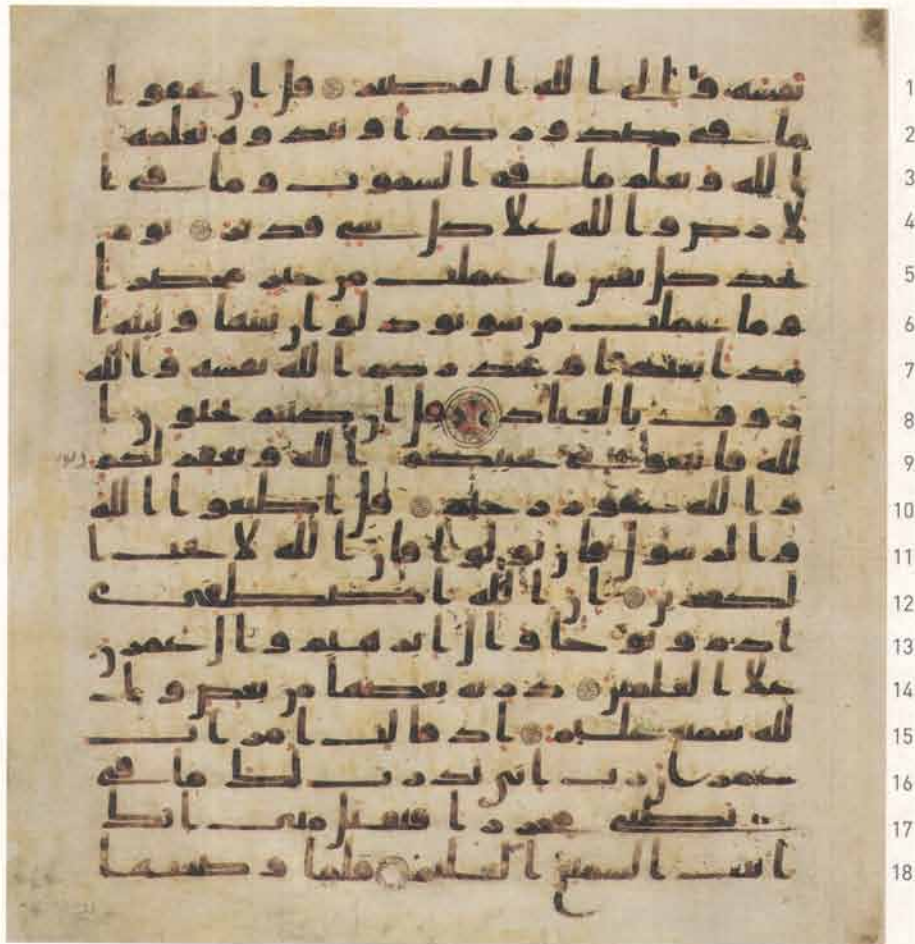 1 نفسه و الى الله المصير قل ان تخفوا
2 ما في صدوركم او تبدوه يعلمه
3 الله و يعلم ما في السموت و ما في ا
4 لارض و الله علا كل شي قدير يوم
5 تجد كل نفس ما عملت من خير محضرا
6 و ما عملت من سو تود لو ان بينها و بينه ا
7 مدا بعيدا و يحذركم الله نفسه و الله
8 روف بالعباد قل ان كنتم تحبون ا
9 لله فاتبعوني يحببكم الله و يغفر لكم
10 و الله غفور رحيم قل اطيعوا الله
11 و الرسول فان تولوا فان الله لا يحب ا
12 لكفرين ان الله اصطفى
13 ادم و نوحا و ال ابرهيم و ال عمرن
14 علا العلمين ذرية بعضها من بعض و ا
15 لله سميع عليم اذ قالت امرات
16 عمرن رب اني نذرت لك ما في
17 بطني محررا فتقبل مني انك
18 انت السميع العليم فلما وضعتها